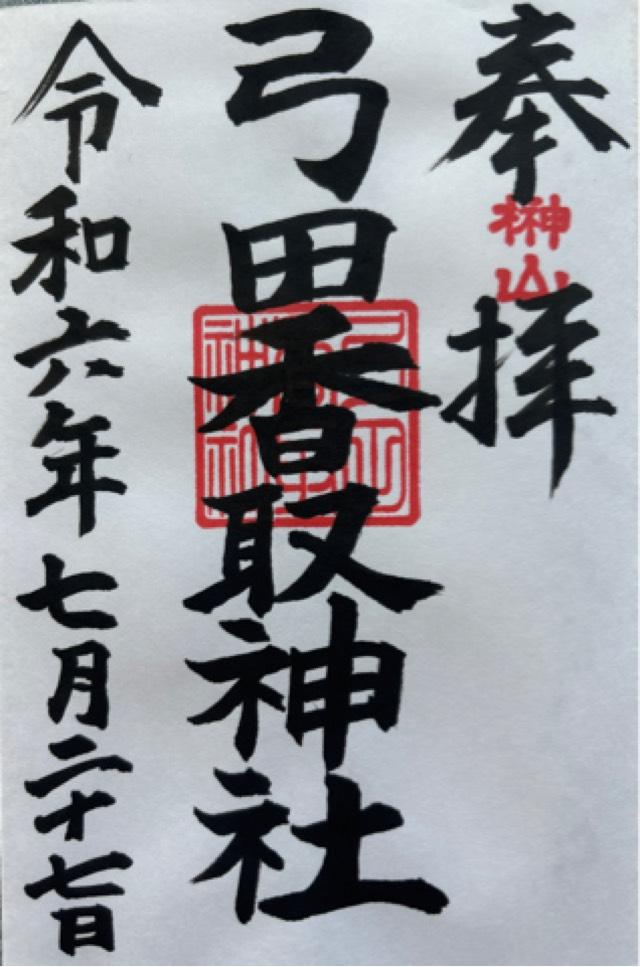 奉拝
榊山
弓田香取神社
令和六年七月二十七日